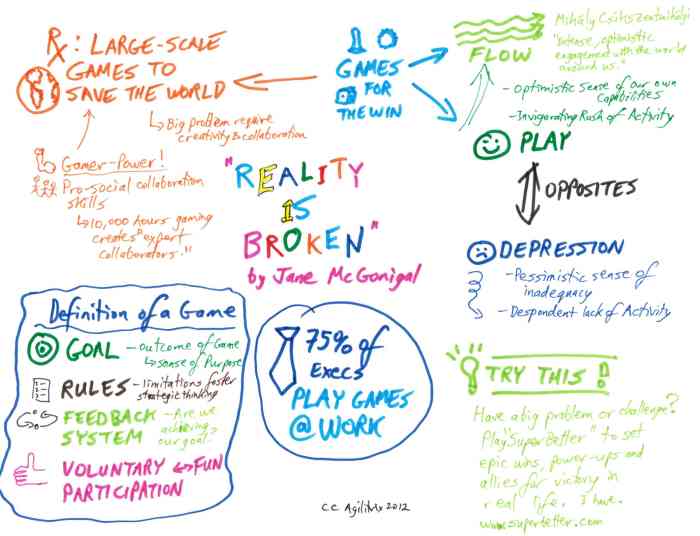 Rx: LARGE-SCALE
GAMES TO
SAVE THE WORLD
↳ Big problem require
creativity & collaboration
Gamer-Power!
Pro-social collaboration
skills
↳ 10,000 hours gaming
creates "expert
collaborators."
GAMES
FOR
THE WIN
FLOW
Mihaly
"Intense, optimistic
engagement with the world
around us."
- Optimistic sense of our own
Capabilities
- Invigorating Rush of Activity
PLAY
OPPOSITES
DEPRESSION
- Pessimistic sense of
inadequacy
- Despondent lack of Activity
"REALITY
IS
BROKEN"
by Jane McGonigal
Definition of a Game
GOAL - outcome of Game
↳ sense of Purpose
RULES - limitations foster
strategic thinking
FEEDBACK - Are we
SYSTEM achieving
our goal?
VOLUNTARY ↔ FUN
PARTICIPATION
75% of
EXECS
PLAY GAMES
@ WORK
TRY THIS!
Have a big problem or challenge?
Play "SuperBetter" to set
epic wins, power-ups and
allies for victory in
real life. I have.
www.superbetter.com
CC AgiliMx 2012